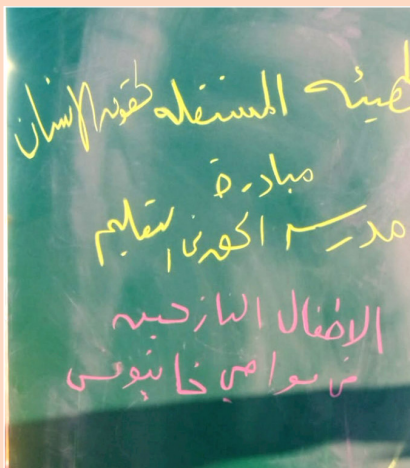 الهيئه المستقله لحقوق الإنسان
مبادرة
مدرسه الحق في التعليم
الاطفال النازحين
في مواصي خانيونس